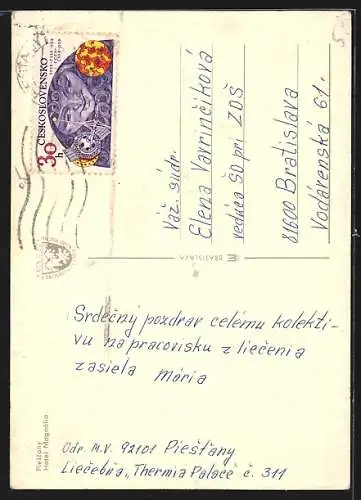 Srdečný pozdrav celému kolekti-
vu na pracovisku z liečenia
zasiela Mária
Odr. M.V. 92101 Piešťany
Liečebňa „Thermia Palace č. 311
Váž. súdr.
Elena Vavrinčíková
vedúca ŠD pri ZDŠ
81600 Bratislava
Vodárenská 61.
ČESKOSLOVENSKO
30 h
BRATISLAVA
Piešťany
Hotel Magnólia